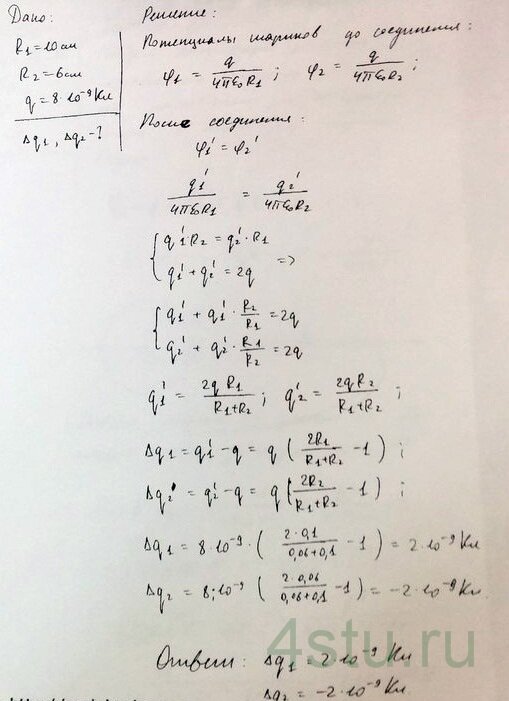 Дано:
R₁=10см
R₂=6см
q=8·10⁻⁹Кл
Δq₁, Δq₂-?
Решение:
Потенциалы шариков до соединения:
φ₁ = q/(4πε₀R₁); φ₂ = q/(4πε₀R₂);
После соединения:
φ₁' = φ₂'
q₁'/(4πε₀R₁) = q₂'/(4πε₀R₂)
{ q₁'R₂ = q₂'·R₁
q₁' + q₂' = 2q =>
{ q₁' + q₁'·R₂/R₁ = 2q
q₂' + q₂'·R₁/R₂ = 2q
q₁' = 2qR₁/(R₁+R₂); q₂' = 2qR₂/(R₁+R₂);
Δq₁ = q₁'-q = q(2R₁/(R₁+R₂) -1);
Δq₂ = q₂'-q = q(2R₂/(R₁+R₂) -1);
Δq₁ = 8·10⁻⁹·(2·0,1/(0,06+0,1) -1) = 2·10⁻⁹Кл
Δq₂ = 8·10⁻⁹(2·0,06/(0,06+0,1) -1) = -2·10⁻⁹Кл.
Ответ: Δq₁ = 2·10⁻⁹Кл
Δq₂ = -2·10⁻⁹Кл.
4stu.ru